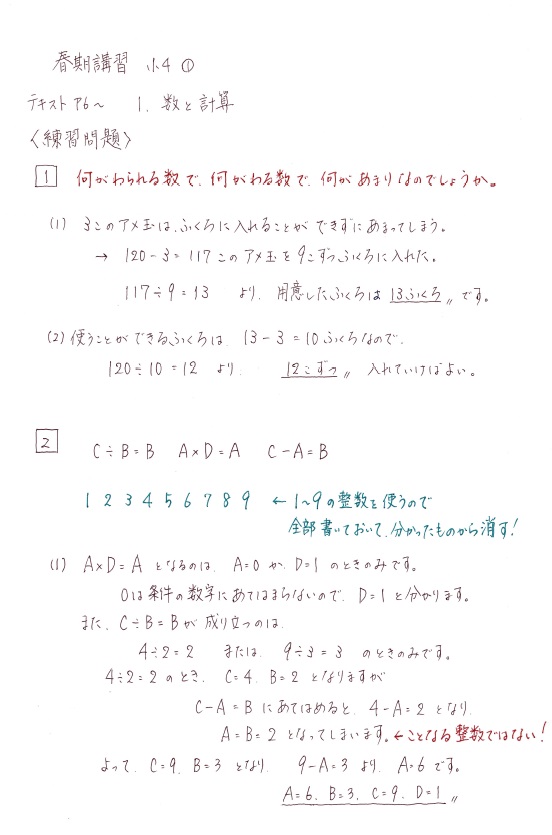 春期講習 小4 ①
テキスト P6～ 1. 数と計算
〈練習問題〉
1 何がわられる数で、何がわる数で、何があまりなのでしょうか。
(1) 3このアメ玉は、ふくろに入れることができずにあまってしまう。
→ 120-3=117このアメ玉を9こずつふくろに入れた。
117÷9=13 より、用意したふくろは13ふくろ〃です。
(2) 使うことができるふくろは、13-3=10ふくろなので、
120÷10=12 より、 12こずつ〃 入れていけばよい。
2 C÷B=B A×D=A C-A=B
1 2 3 4 5 6 7 8 9 ← 1～9の整数を使うので
全部書いておいて、分かったものから消す!
(1) A×D=A となるのは、A=0 か、D=1 のときのみです。
0は条件の数字にあてはまらないので、D=1 と分かります。
また、C÷B=Bが成り立つのは、
4÷2=2 または、9÷3=3 のときのみです。
4÷2=2 のとき、C=4、B=2 となりますが
C-A=B にあてはめると、4-A=2 となり、
A=B=2 となってしまいます。←ことなる整数ではない!
よって、C=9、B=3 となり、 9-A=3 より、A=6 です。
A=6、B=3、C=9、D=1〃